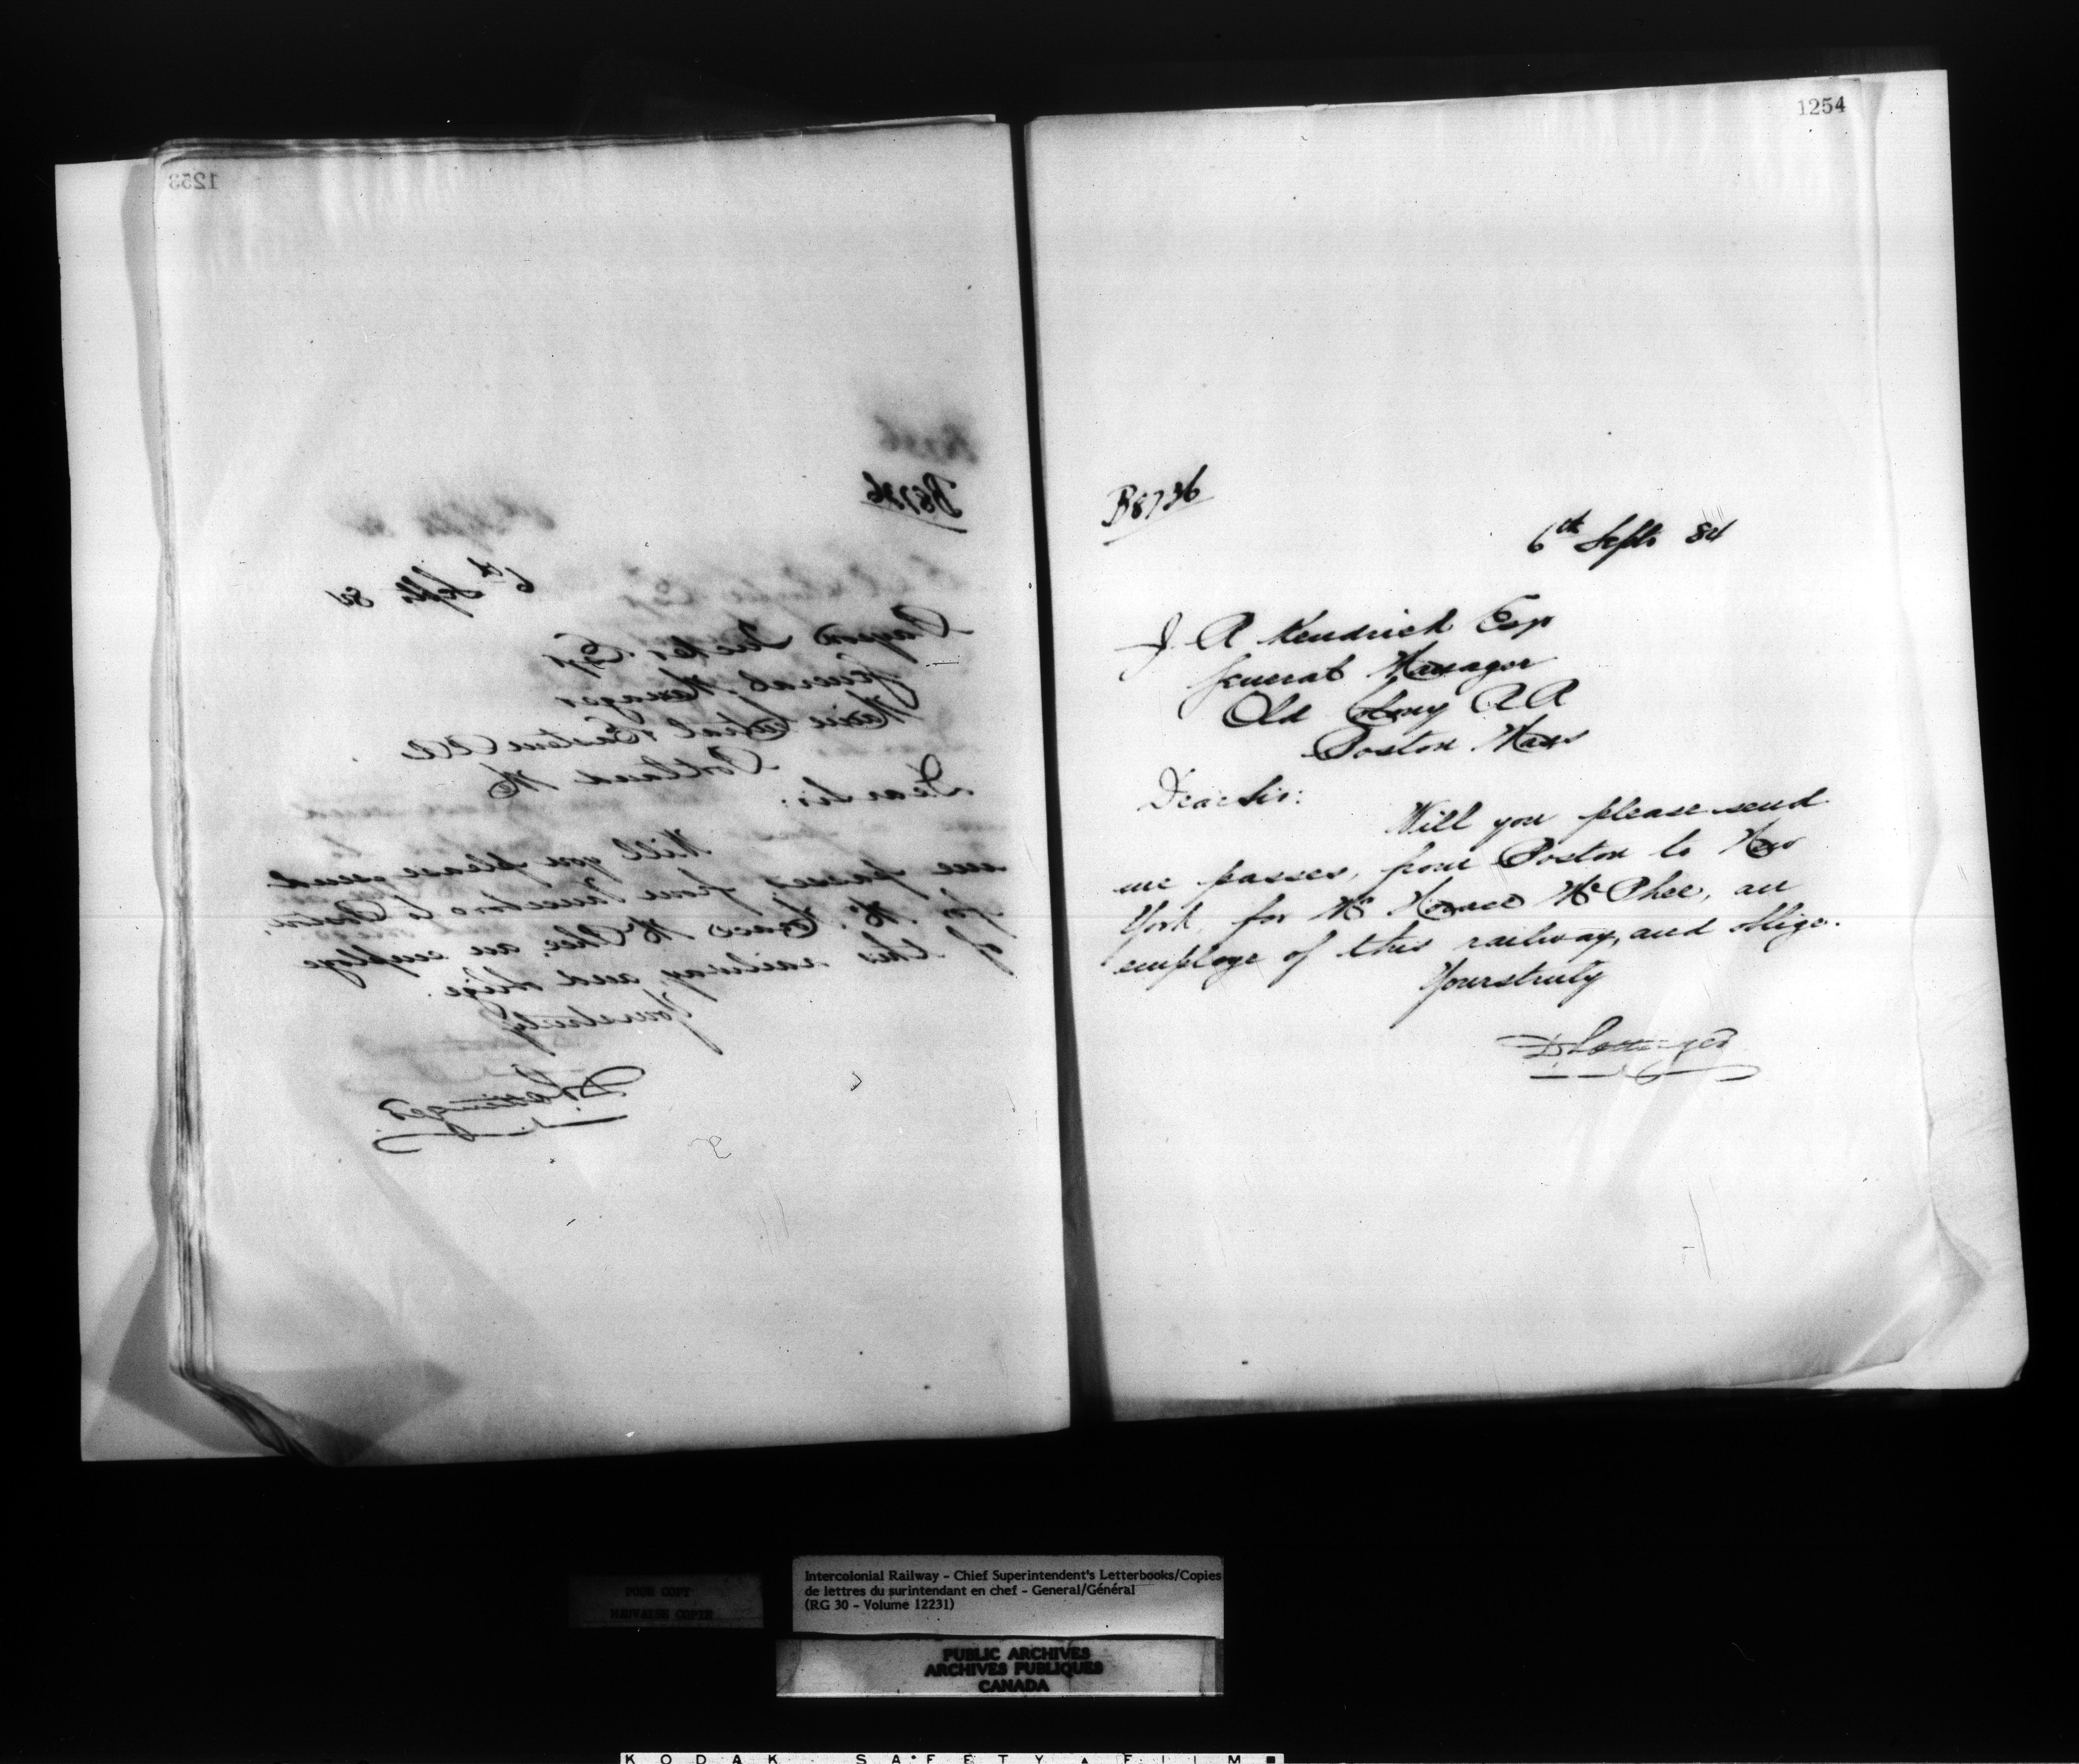 1253
B8736
6th Septr 84
Payson Tucker Esqr
General Manager
Maine Central & Eastern RR
Portland Me
Dear Sir:
Will you please send
me passes from Vanceboro to Boston,
for Mr. Horace McPhee, an employe
of this railway, and oblige.
Yours truly
D Pottinger
1254
B8736
6th Septr 84
J. R Kendrick Esqr
General Manager
Old Colony R R
Boston Mass
Dear Sir:
Will you please send
me passes, from Boston to New
York, for Mr Horace McPhee, an
employe of this railway, and oblige.
Yours truly
D Pottinger
POOR COPY
MAUVAISE COPIE
Intercolonial Railway - Chief Superintendent's Letterbooks/Copies
de lettres du surintendant en chef - General/Général
(RG 30 - Volume 12231)
PUBLIC ARCHIVES
ARCHIVES PUBLIQUES
CANADA
KODAK SAFETY FILM